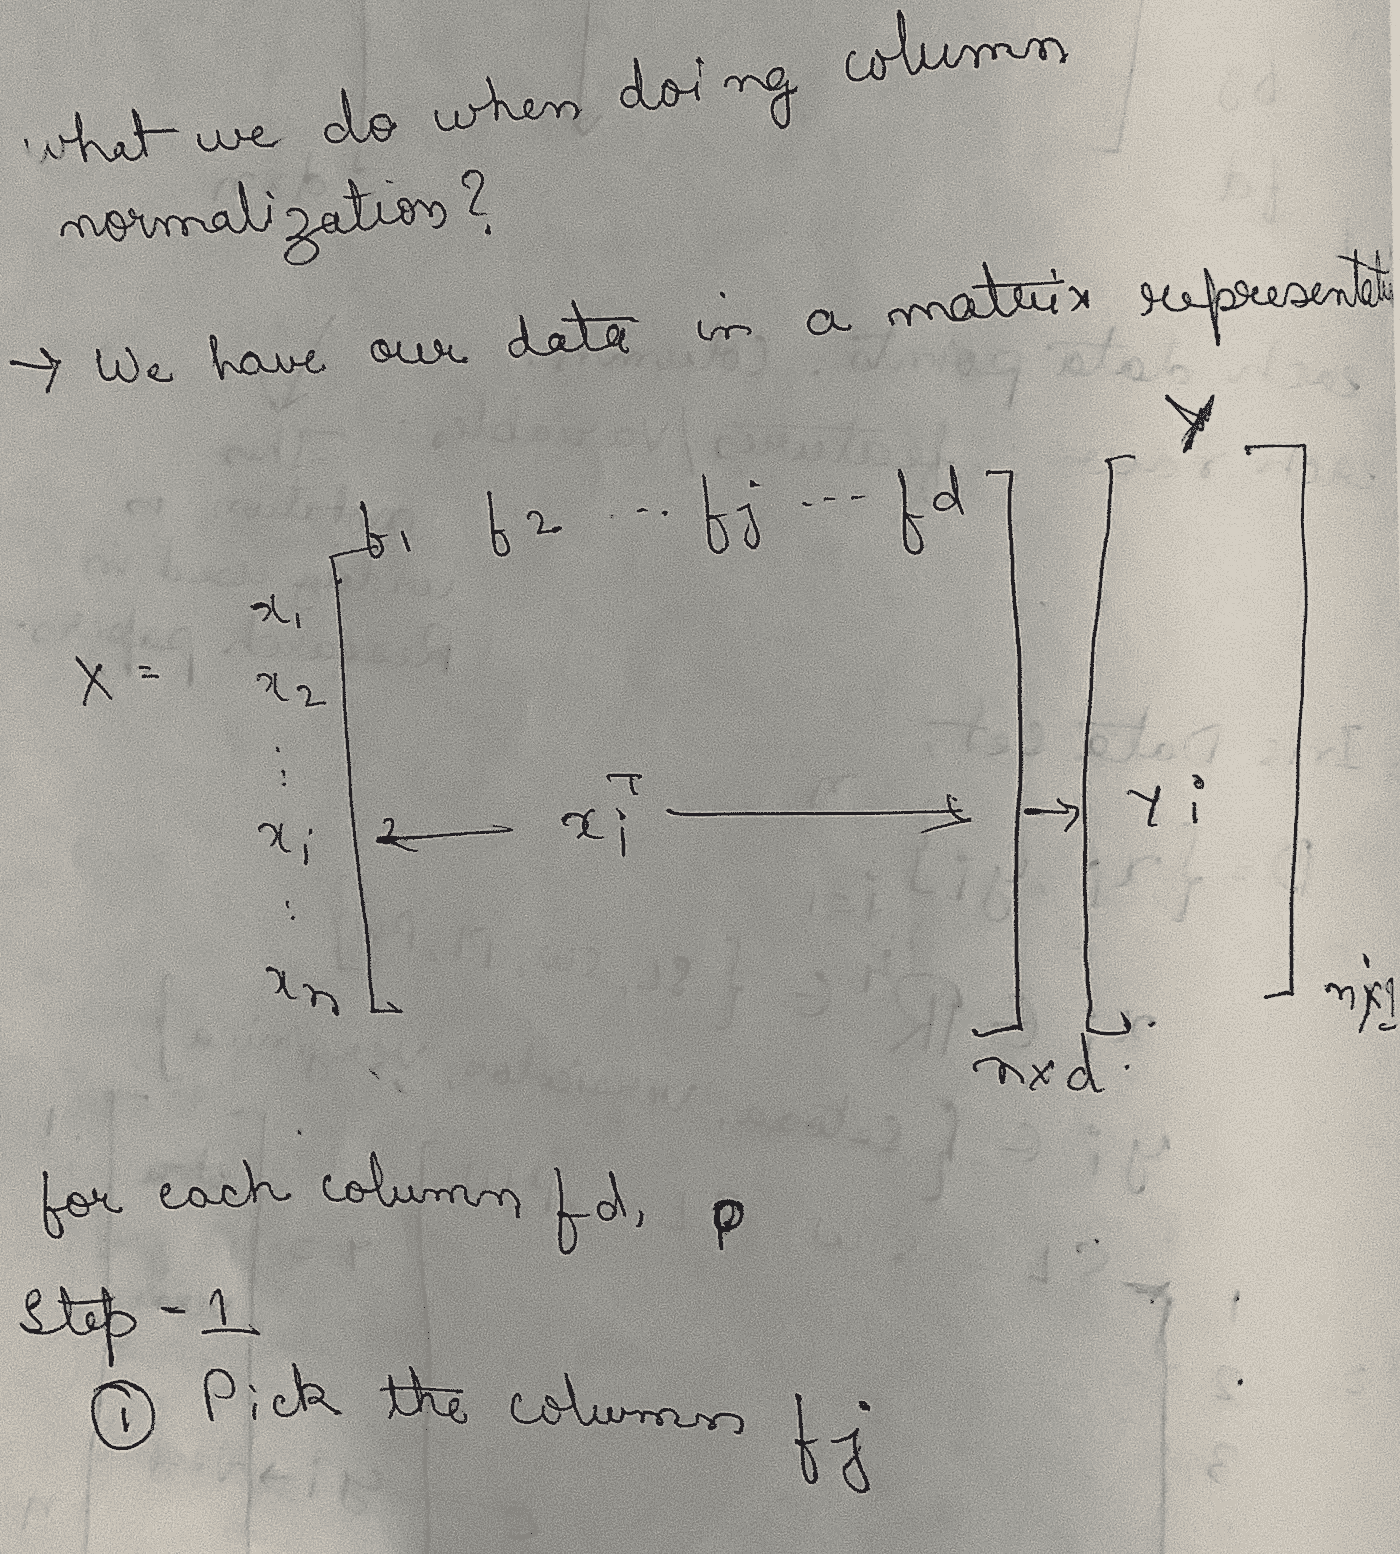 what we do when doing column
normalization?
→ We have our data in a matrix representati
Y
f1 f2 ... fj --- fd
x1
X = x2
:
xi ← xiᵀ → → Yi
:
xn
nx1
nxd
for each column fd,
Step - 1
① Pick the column fj